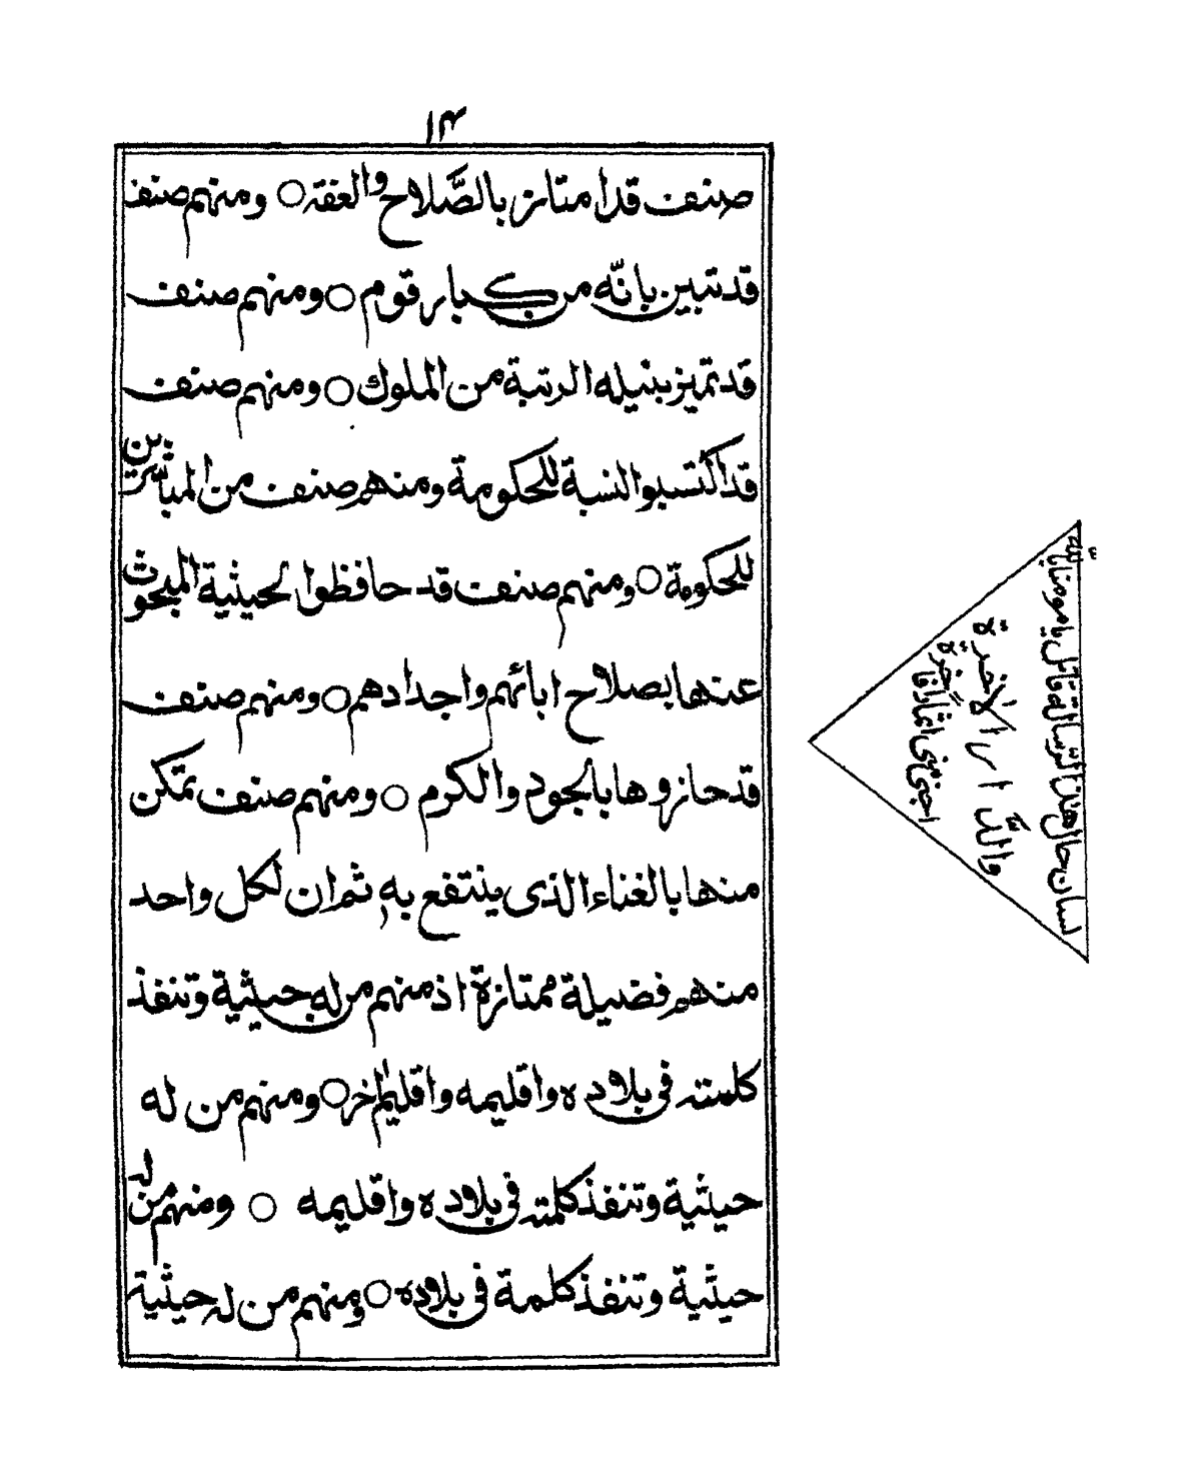 ١٣
صنف قد امتاز بالصَّلاح والعفة ○ ومنهم صنف
قد تبين بانّه من كبار قوم ○ ومنهم صنف
قد تميز بنيله الرتبة من الملوك ○ ومنهم صنف
قد اكتسبوا النسبة للحكومة ومنهم صنف من المباشرين
للحكومة ○ ومنهم صنف قد حافظوا لحيثية المبحوث
عنها بصلاح ابائهم واجدادهم ○ ومنهم صنف
قد حازوها بالجود والكرم ○ ومنهم صنف تمكن
منها بالغناء الذى ينتفع به ثم ان لكل واحد
منهم فضيلة ممتازة اذ منهم من له حيثية وتنفذ
كلمته فى بلاده واقليمه واقليم اخر ○ ومنهم من له
حيثية وتنفذ كلمته فى بلاده واقليمه ○ ومنهم من له
حيثية وتنفذ كلمة فى بلاده ○ ومنهم من له حيثية
لسان حال هذا الرسالة قائل يا مومنا بالله
والدار الاخرة
اجنى منى اثمارا فاخرة